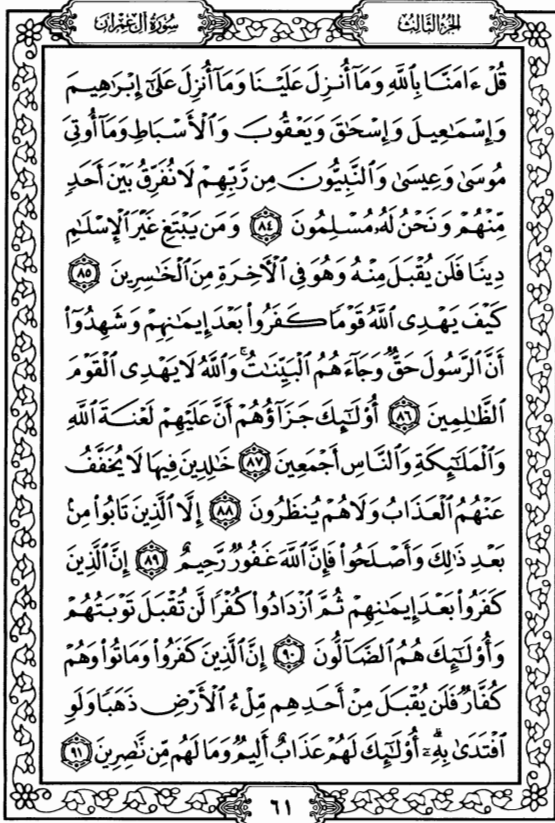 سُورَةُ آلِ عِمْرَان الجُزءُ الثَّالِثُ
قُلْ ءَامَنَّا بِٱللَّهِ وَمَآ أُنزِلَ عَلَيْنَا وَمَآ أُنزِلَ عَلَىٰٓ إِبْرَٰهِيمَ
وَإِسْمَٰعِيلَ وَإِسْحَٰقَ وَيَعْقُوبَ وَٱلْأَسْبَاطِ وَمَآ أُوتِىَ
مُوسَىٰ وَعِيسَىٰ وَٱلنَّبِيُّونَ مِن رَّبِّهِمْ لَا نُفَرِّقُ بَيْنَ أَحَدٍ
مِّنْهُمْ وَنَحْنُ لَهُۥ مُسْلِمُونَ ٨٤ وَمَن يَبْتَغِ غَيْرَ ٱلْإِسْلَٰمِ
دِينًا فَلَن يُقْبَلَ مِنْهُ وَهُوَ فِى ٱلْءَاخِرَةِ مِنَ ٱلْخَٰسِرِينَ ٨٥
كَيْفَ يَهْدِى ٱللَّهُ قَوْمًا كَفَرُوا۟ بَعْدَ إِيمَٰنِهِمْ وَشَهِدُوٓا۟
أَنَّ ٱلرَّسُولَ حَقٌّ وَجَآءَهُمُ ٱلْبَيِّنَٰتُ ۚ وَٱللَّهُ لَا يَهْدِى ٱلْقَوْمَ
ٱلظَّٰلِمِينَ ٨٦ أُو۟لَٰٓئِكَ جَزَآؤُهُمْ أَنَّ عَلَيْهِمْ لَعْنَةَ ٱللَّهِ
وَٱلْمَلَٰٓئِكَةِ وَٱلنَّاسِ أَجْمَعِينَ ٨٧ خَٰلِدِينَ فِيهَا لَا يُخَفَّفُ
عَنْهُمُ ٱلْعَذَابُ وَلَا هُمْ يُنظَرُونَ ٨٨ إِلَّا ٱلَّذِينَ تَابُوا۟ مِنۢ
بَعْدِ ذَٰلِكَ وَأَصْلَحُوا۟ فَإِنَّ ٱللَّهَ غَفُورٌ رَّحِيمٌ ٨٩ إِنَّ ٱلَّذِينَ
كَفَرُوا۟ بَعْدَ إِيمَٰنِهِمْ ثُمَّ ٱزْدَادُوا۟ كُفْرًا لَّن تُقْبَلَ تَوْبَتُهُمْ
وَأُو۟لَٰٓئِكَ هُمُ ٱلضَّآلُّونَ ٩٠ إِنَّ ٱلَّذِينَ كَفَرُوا۟ وَمَاتُوا۟ وَهُمْ
كُفَّارٌ فَلَن يُقْبَلَ مِنْ أَحَدِهِم مِّلْءُ ٱلْأَرْضِ ذَهَبًا وَلَوِ
ٱفْتَدَىٰ بِهِۦٓ ۗ أُو۟لَٰٓئِكَ لَهُمْ عَذَابٌ أَلِيمٌ وَمَا لَهُم مِّن نَّٰصِرِينَ ٩١
٦١